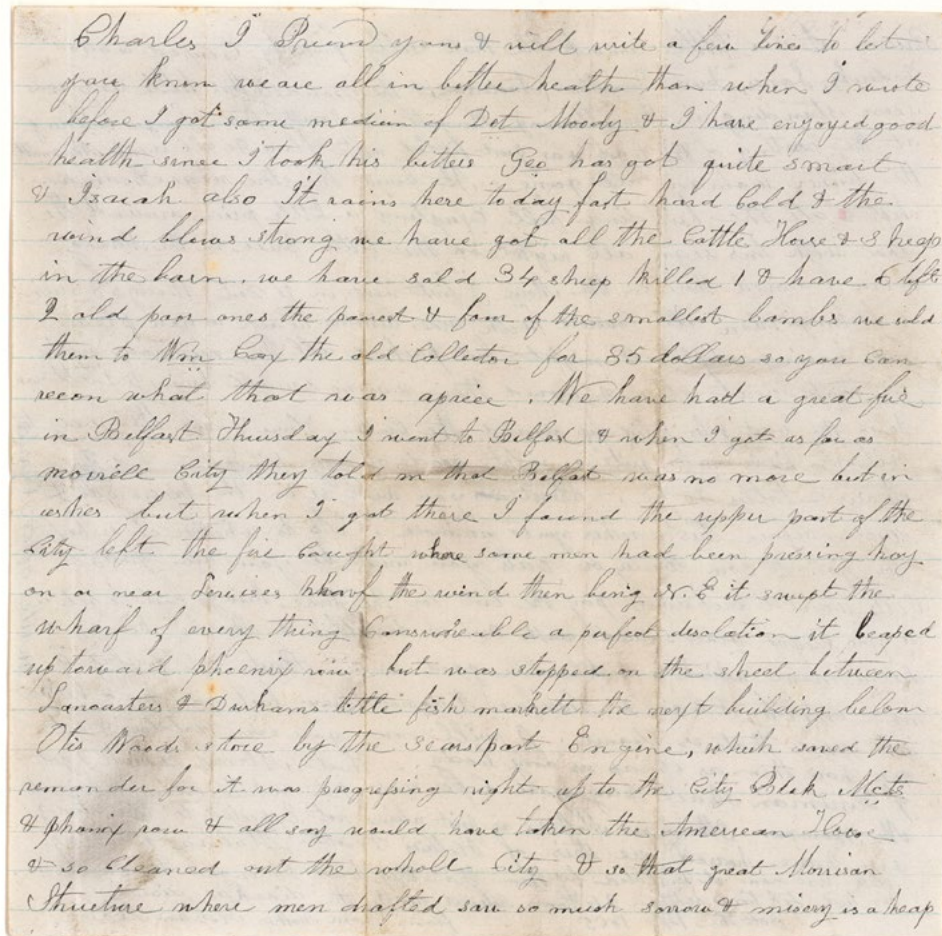 Charles I Priend yours & will write a few lines to let
you know we are all in better health than when I wrote
before I got some medicin of Dot Moody & I have enjoyed good
health since I took his bitters Geo has got quite smart
& Isaiah also It rains here today fast hard Cold & the
wind blows strong we have got all the Cattle Horse & Sheep
in the barn. we have sold 34 sheep killed 1 & have 6 left
2 old poor ones the poorest & four of the smallest lambs we sold
them to Wm Cox the old Collector for 85 dollars so you can
recon what that was apiece. We have had a great fire
in Belfast Thursday I went to Belfast & when I got as far as
morrill City they told m that Belfast was no more but in
ashes but when I got there I found the upper part of the
City left the fire Caught where some men had been pressing hay
on or near wharf the wind then being N. E it swept the
wharf of every thing Consumeable a perfect desolation it leaped
up toward phoenix row, but was stopped on the street between
Lancasters & Durhams little fish markett the next building below
Otis Woods store by the Searsport Engine, which saved the
remander for it was progressing right up to the City Blok McTs
& phanix row & all say would have taken the American House
& so Cleaned out the whole City & so that great Morrison
Structure where men drafted saw so much sorrow & misery is a heap